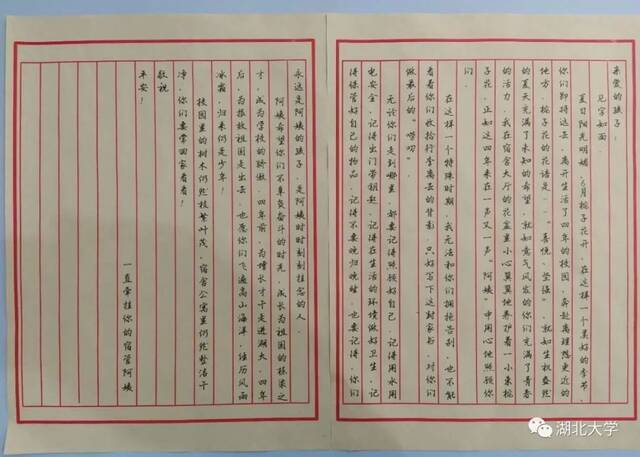 亲爱的孩子：
见字如面。
夏日阳光明媚，6月栀子花开，在这样一个美好的季节，
你们即将远去，离开生活了四年的校园，奔赴离理想更近的
地方。栀子花的花语是——“喜悦、坚强”，就如生机盎然
的夏天充满了未知的希望，就如意气风发的你们充满了青春
的活力。我在宿舍大厅的花盆里小心翼翼地养护着一小束栀
子花，正如这四年来在一声又一声“阿姨”中用心地照顾你
们。
在这样一个特殊时期，我无法和你们拥抱告别，也不能
看着你们收拾行李离去的背影，只好写下这封家书，对你们
做最后的“唠叨”。
无论你们走到哪里，都要记得照顾好自己，记得用水用
电安全，记得出门带钥匙，记得在生活的环境做好卫生，记
得保管好自己的物品，记得不要晚归晚睡，也要记得，你们
永远是阿姨的孩子，是阿姨时时刻刻挂念的人。
阿姨希望你们不辜负奋斗的时光，成长为祖国的栋梁之
才，成为学校的骄傲。四年前，为增长才干走进湖大，四年
后，为报效祖国走出去，也愿你们飞遍高山海洋，经历风雨
冰霜，归来仍是少年！
校园里的树木仍然枝繁叶茂，宿舍公寓里仍然整洁干
净，你们要常回家看看！
敬祝
平安！
一直牵挂你的宿管阿姨
湖北大学